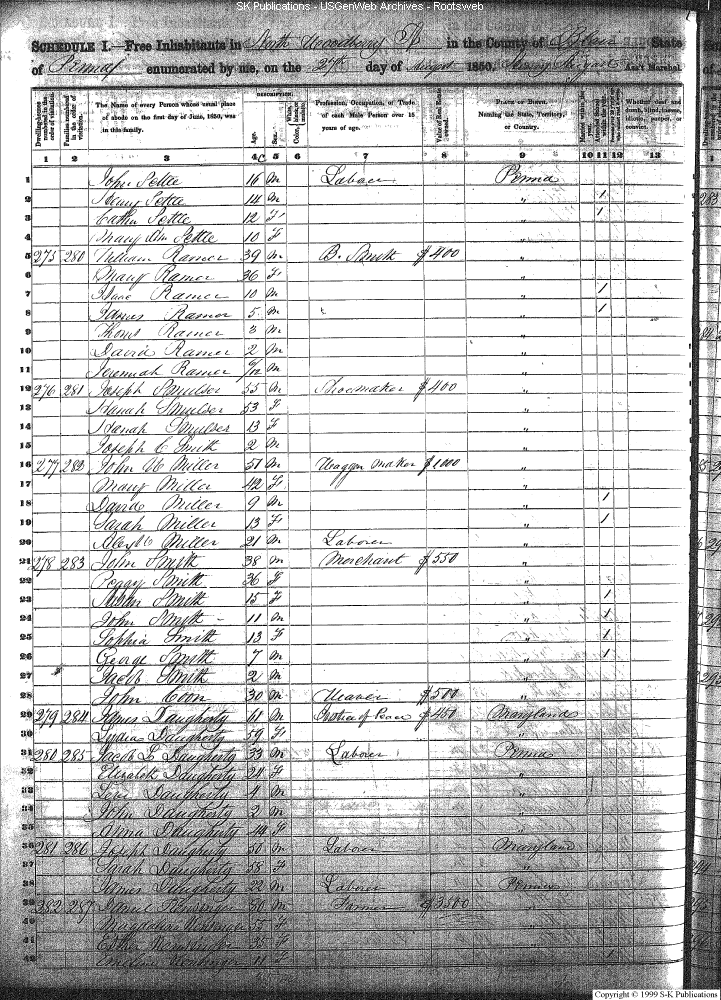 SK Publications - USGenWeb Archives - Rootsweb
SCHEDULE I.—Free Inhabitants in North Woodberry Tp in the County of Blair State
of Penna enumerated by me, on the 27th day of August 1850. Ass't Marshal.
DESCRIPTION.
Dwelling-houses numbered in the order of visitation.
Families numbered in the order of visitation.
The Name of every Person whose usual place of abode on the first day of June, 1850, was in this family.
Age.
Sex.
White, black, or mulatto. Color,
Profession, Occupation, or Trade of each Male Person over 15 years of age.
Value of Real Estate owned.
PLACE OF BIRTH. Naming the State, Territory, or Country.
Whether deaf and dumb, blind, insane, idiotic, pauper, or convict.
1 2 3 4 5 6 7 8 9 10 11 12 13
1 John Settle 16 m Laborer Penna
2 Henry Settle 14 m " 1
3 Cathn Settle 12 F " 1
4 Mary Ann Settle 10 F "
5 275 280 William Ramer 39 m B. Smith $400 "
6 Mary Ramer 36 F "
7 Isaac Ramer 10 m " 1
8 James Ramer 5 m " 1
9 Thoms Ramer 3 m "
10 David Ramer 2 m "
11 Jeremiah Ramer /12 m "
12 276 281 Joseph Smulser 55 m Shoemaker $400 "
13 Hanah Smulser 53 F "
14 Hanah Smulser 13 F "
15 Joseph C Smith 2 m "
16 277 282 John Miller 51 m Waggon Maker $1000 "
17 Mary Miller 42 F "
18 David Miller 9 m " 1
19 Sarah Miller 13 F " 1
20 Miller 21 m Laborer "
21 278 283 John Smith 38 m Merchant $550 "
22 Peggy Smith 36 F "
23 Susan Smith 15 F " 1
24 John Smith 11 m " 1
25 Sophia Smith 13 F " 1
26 George Smith 7 m " 1
27 Jacob Smith 2 m "
28 John Coon 30 m Weaver $500 "
29 279 284 James Daugherty 61 m Justice of Peace $450 Maryland
30 Lydia Daugherty 59 F "
31 280 285 Jacob L Daugherty 33 m Laborer Penna
32 Elizabeth Daugherty 24 F "
33 Levi Daugherty 4 m "
34 John Daugherty 2 m "
35 Anna Daugherty F "
36 281 286 Joseph Daugherty 50 m Laborer Maryland
37 Sarah Daugherty 58 F "
38 James Daugherty 22 m Laborer Penna
39 282 287 50 m Farmer $3500 "
40 Magdalena 55 F "
41 Esther 35 F "
42 11 F " 1
Copyright © 1999 S-K Publications